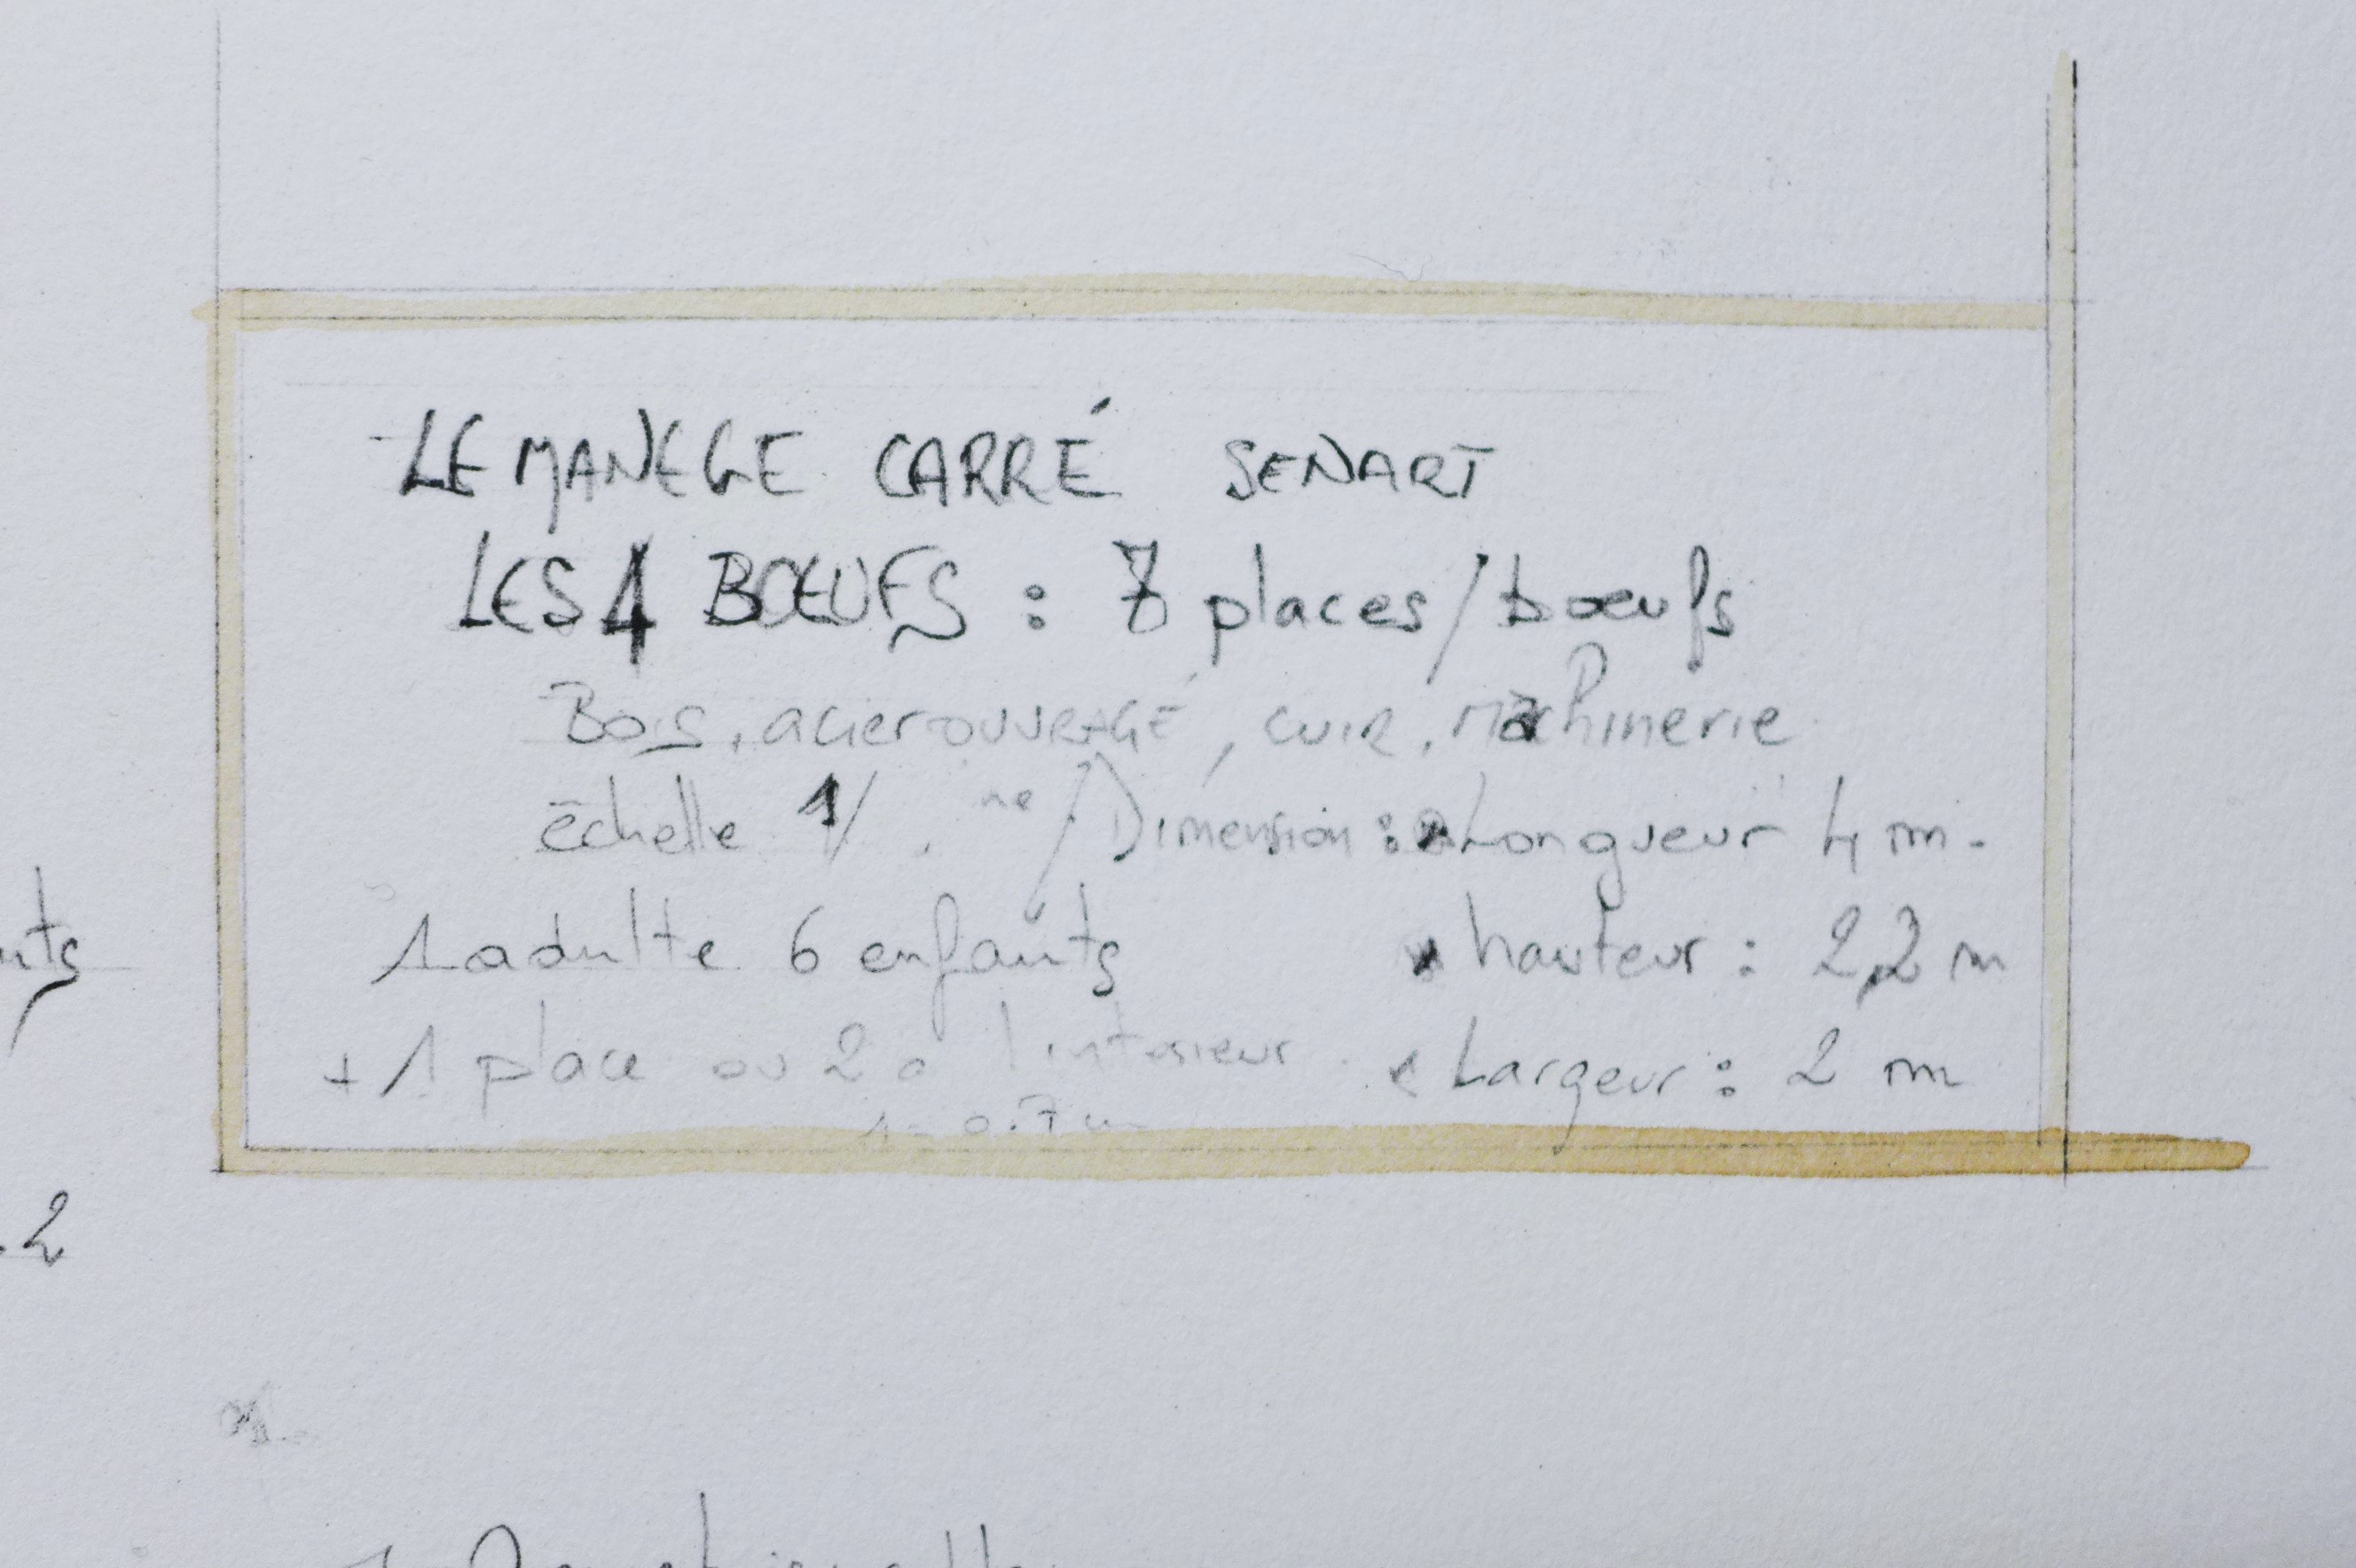 LE MANEGE CARRÉ SENART
LES 4 BŒUFS : 7 places/bœufs
Bois, acier OUVRAGÉ, CUIR, Machinerie
échelle 1/ ne / Dimension : Longueur 4 m.
1 adulte 6 enfants hauteur : 2,2 m
+ 1 place ou 2 a l'interieur Largeur : 2 m
0.7
.2